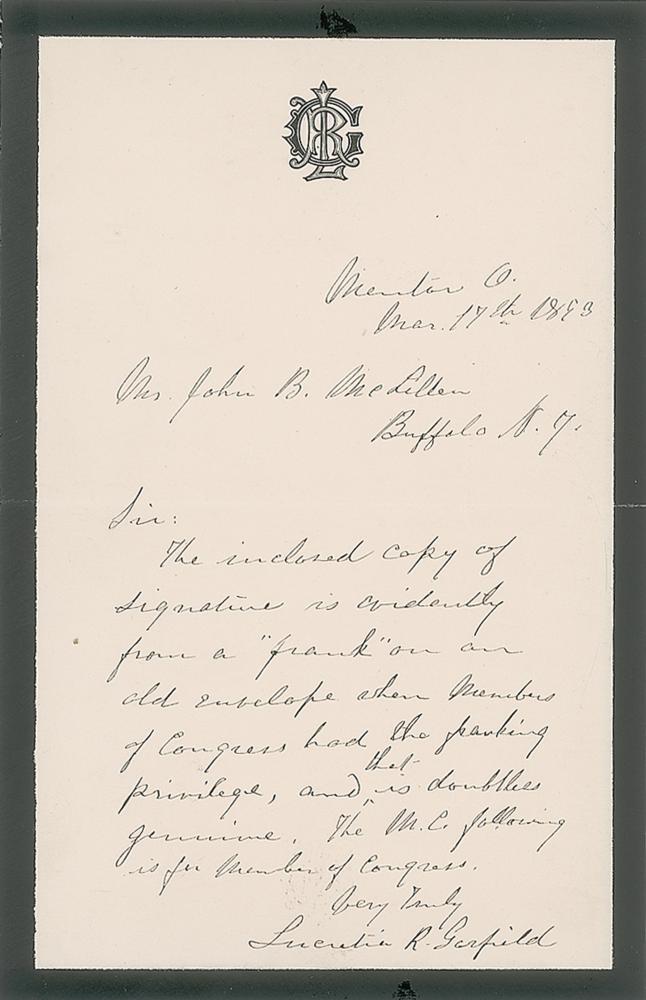 Mentor O.
Mar. 17th 1893
Mr. John B. McLellen
Buffalo N. Y.
Sir:
The inclosed copy of
signature is evidently
from a "frank" on an
old envelope when Members
of Congress had the franking
privilege, and that is doubtless
genuine. The M.C. following
is for Member of Congress.
Very Truly
Lucretia R. Garfield